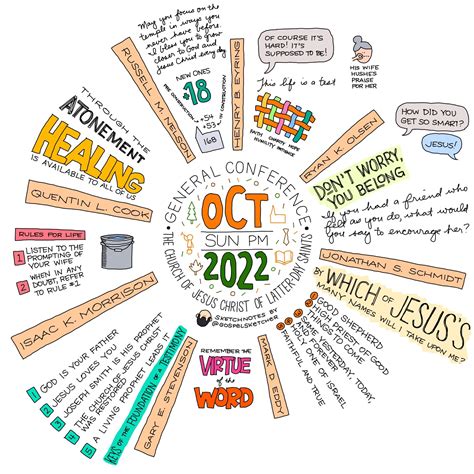 GENERAL CONFERENCE
OCT
SUN PM
2022
THE CHURCH OF JESUS CHRIST OF LATTER-DAY SAINTS
SKETCHNOTES BY
@GOSPELSKETCHER
RUSSELL M. NELSON
May you focus on the
temple in ways you
never have before.
I bless you to grow
closer to God and
Jesus Christ every day
NEW ONES
+18
PRE CONSTRUCTION
+54
+53
IN CONSTRUCTION
168
HENRY B. EYRING
OF COURSE IT'S
HARD! IT'S
SUPPOSED TO BE!
HIS WIFE
HUSHES
PRAISE
FOR HER
This life is a test
FAITH CHARITY HOPE
HUMILITY PATIENCE
RYAN K. OLSEN
HOW DID YOU
GET SO SMART?
JESUS!
DON'T WORRY,
YOU BELONG
If you had a friend who
felt as you do, what would
you say to encourage her?
JONATHAN S. SCHMIDT
BY WHICH OF JESUS'S
MANY NAMES WILL I TAKE UPON ME?
GOOD SHEPHERD
HIGH PRIEST OF GOOD
THINGS TO COME
SAME YESTERDAY, TODAY,
AND FOREVER
HOLY ONE OF ISRAEL
FAITHFUL AND TRUE
MARK D. EDDY
REMEMBER THE
VIRTUE
of the
WORD
GARY E. STEVENSON
KEYS OF THE FOUNDATION OF A TESTIMONY
1 GOD IS YOUR FATHER
2 JESUS LOVES YOU
3 JOSEPH SMITH IS HIS PROPHET
4 THE CHURCH OF JESUS CHRIST
WAS RESTORED
5 A LIVING PROPHET LEADS IT
ISAAC K. MORRISON
RULES FOR LIFE
1 LISTEN TO THE
PROMPTING OF
YOUR WIFE
2 WHEN IN ANY
DOUBT, REFER
TO RULE #1
QUENTIN L. COOK
THROUGH THE
ATONEMENT
HEALING
IS AVAILABLE TO ALL OF US